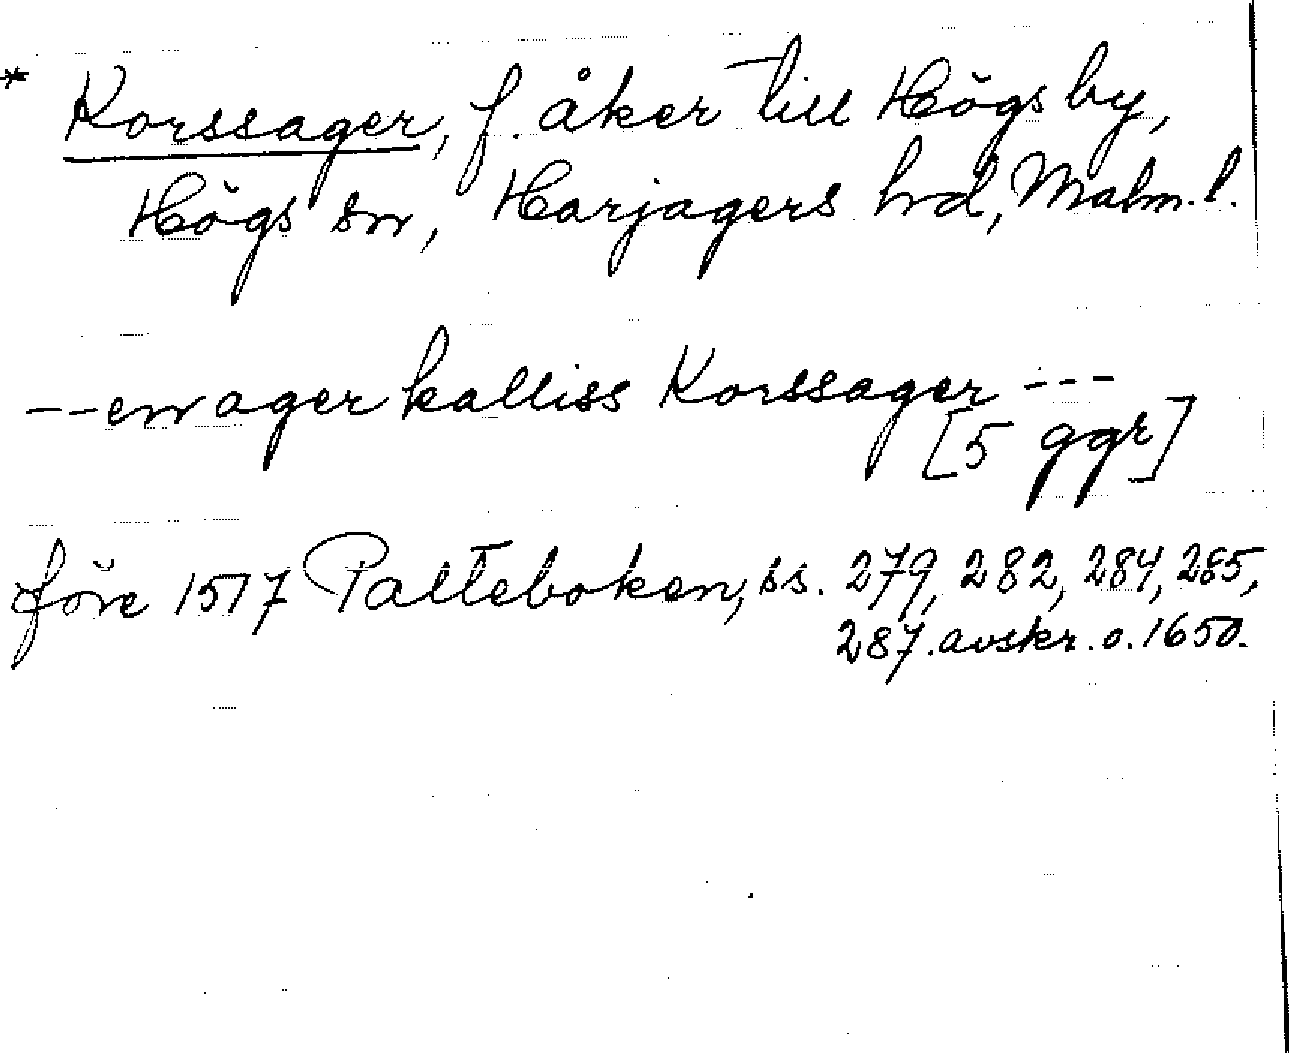 * Korssager, f. åker till Högs by,
Högs sn, Harjagers hd, Malm. l.
-- en ager kalliss Korssager ---
[5 ggr]
före 1517 Palteboken, ss. 279, 282, 284, 285,
287. avskr. o. 1650.